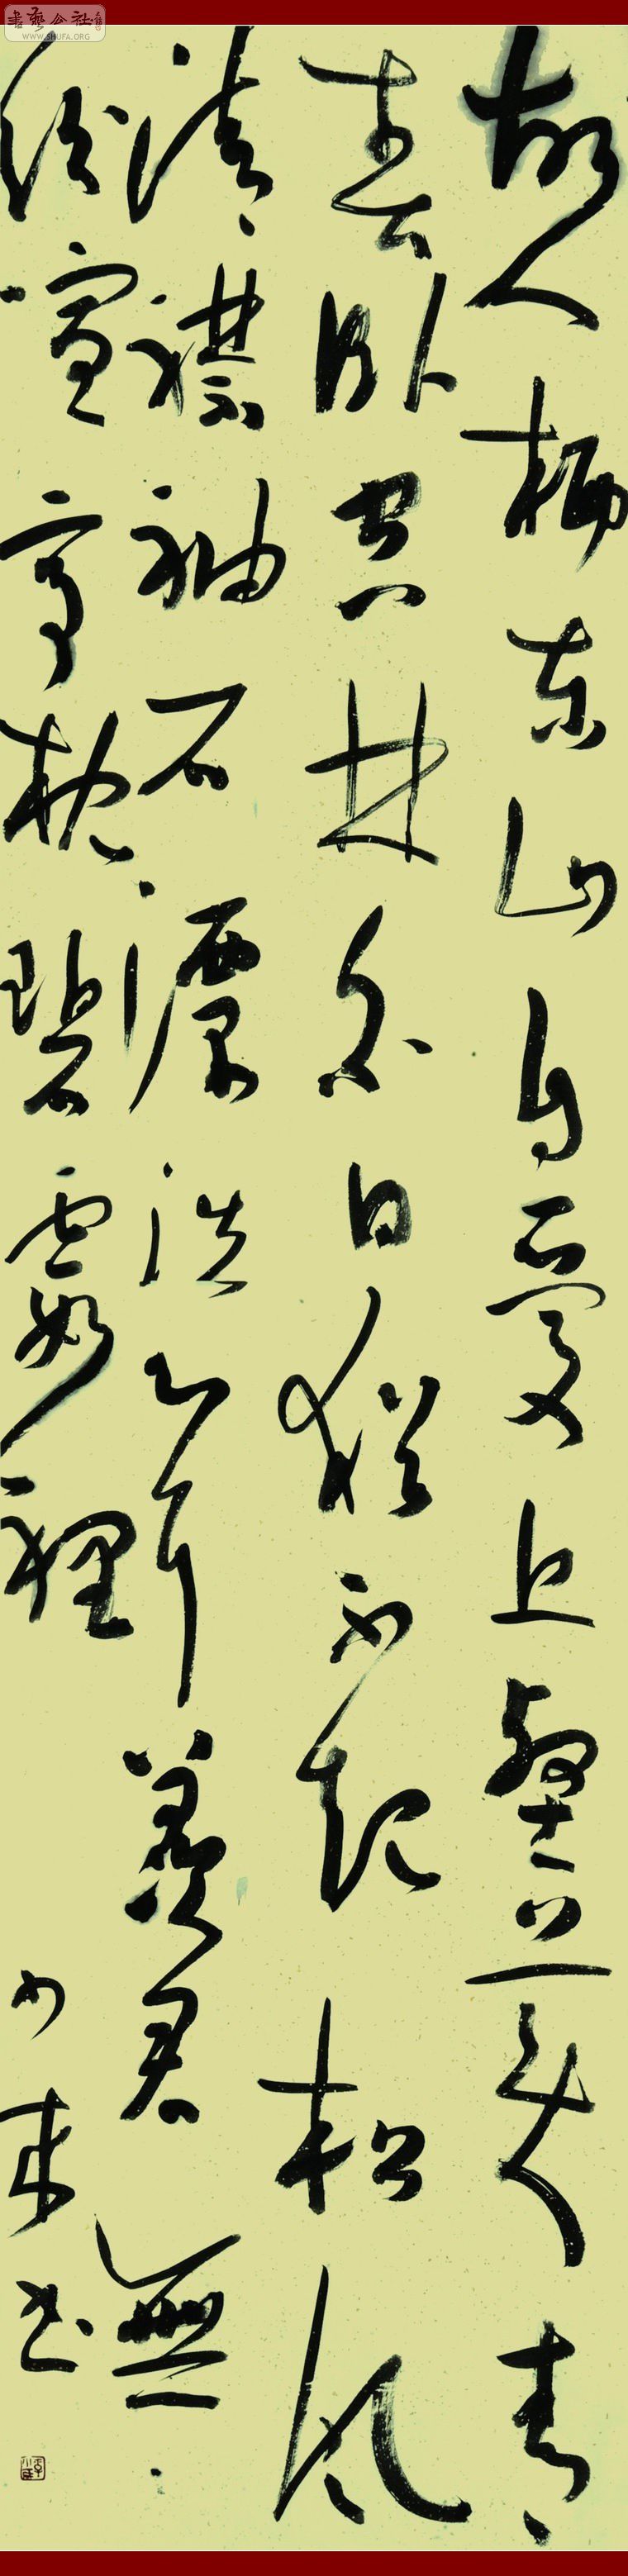 書藝公社
WWW.SHUFA.ORG
故人栖东山自愛丘壑美青
春卧空林白日猶不起松風
清襟袖石潭洗心耳羡君無
紛喧高枕碧霞裡
书